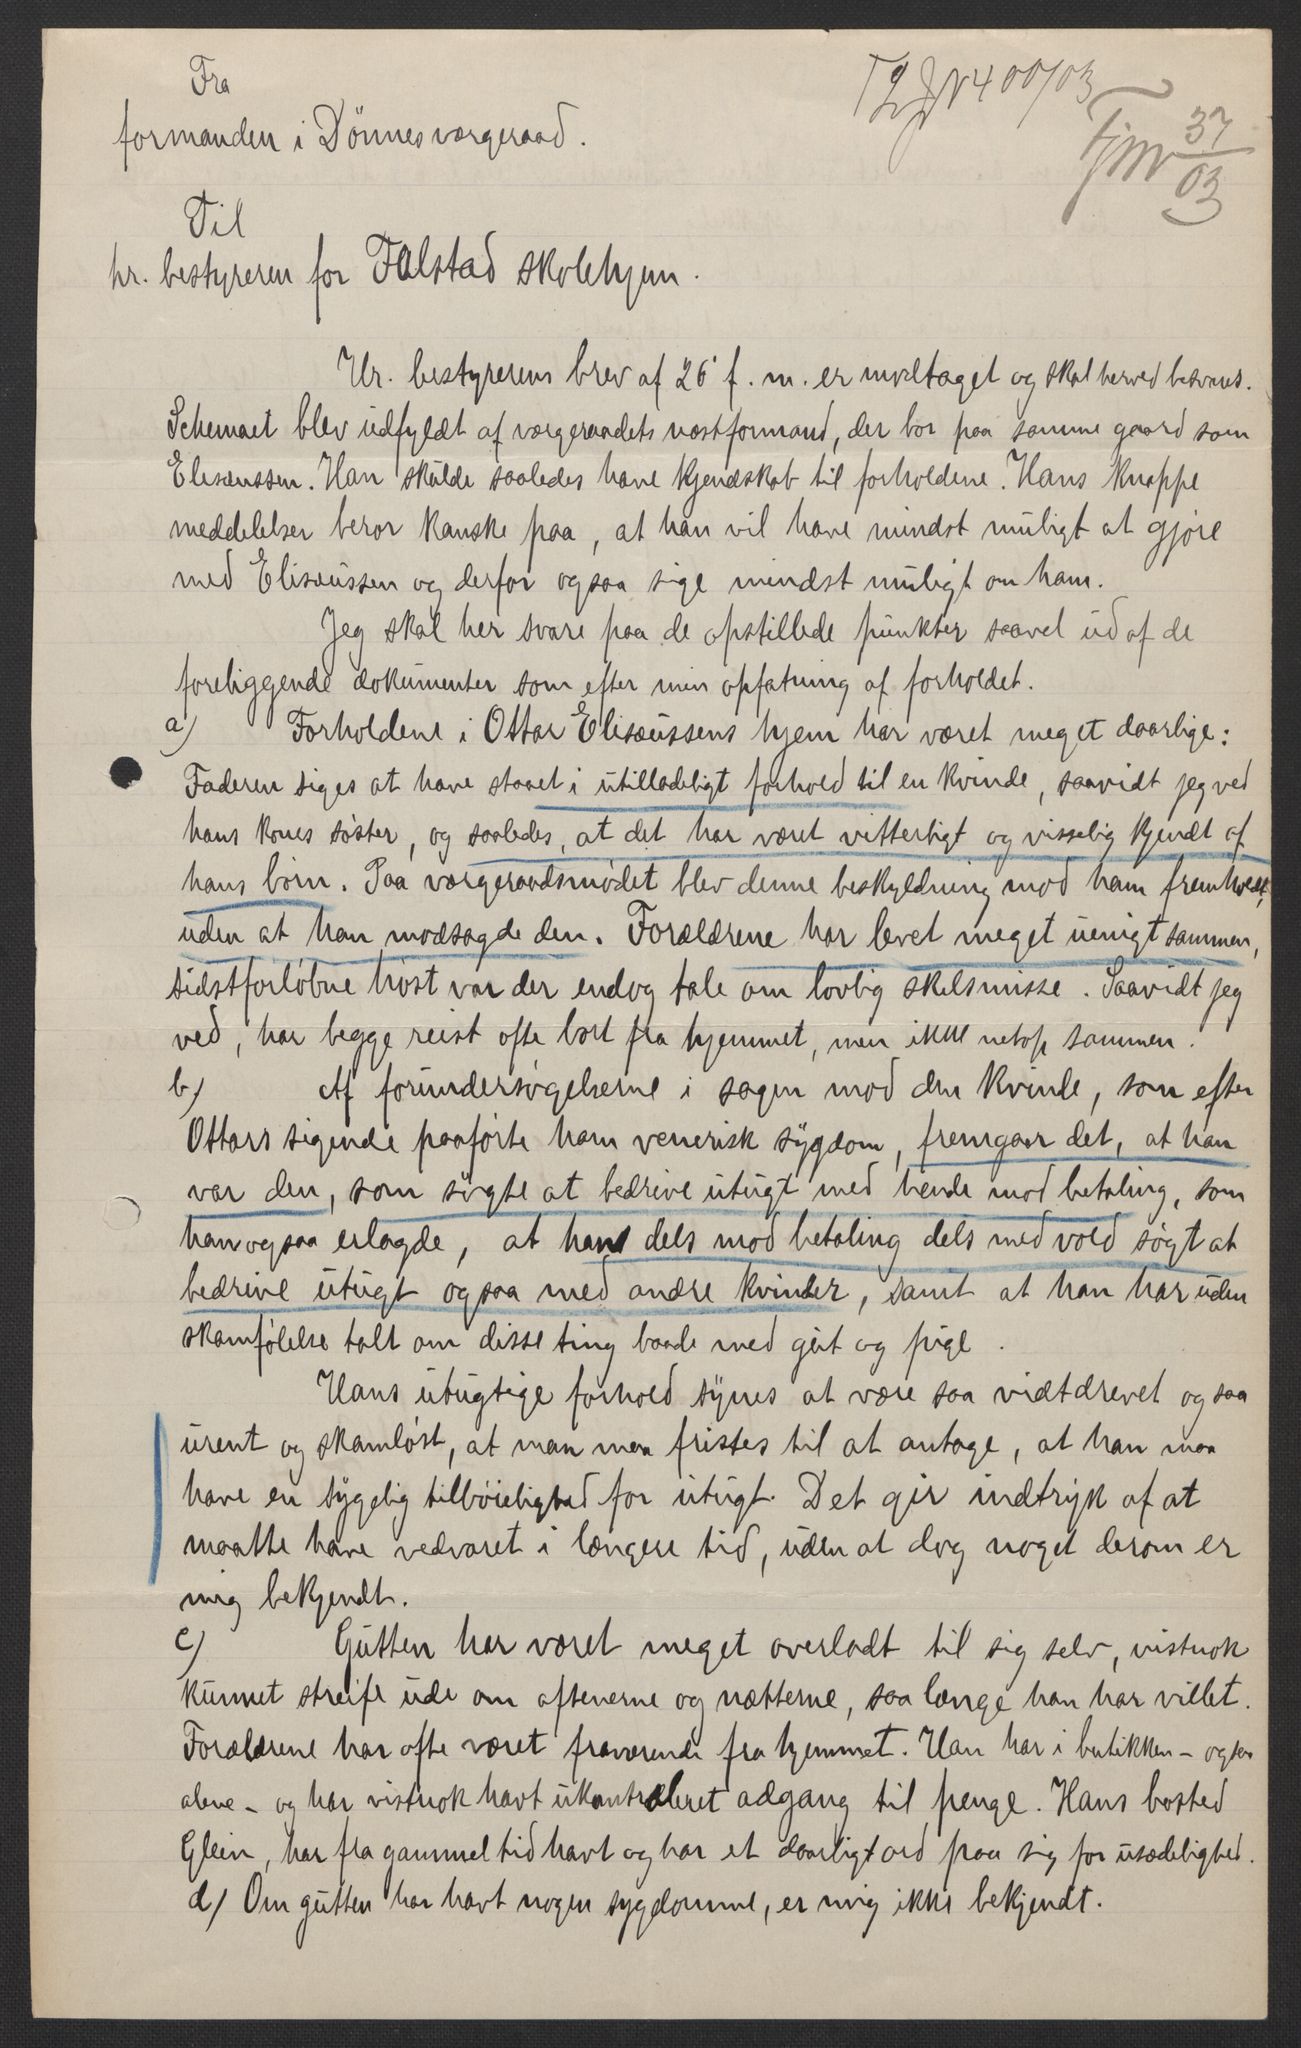 Fra
formanden i Dönnes værgeraad.
400/03
37
03
Til
hr. bestyreren for Falstad skolehjem.
Hr. bestyrerens brev af 26' f. m. er modtaget og skal herved besvares.
Schemaet blev udfyldt af værgeraadets næstformand, der bor paa samme gaard som
Elisæussen. Han skulde saaledes have kjendskab til forholdene. Hans knappe
meddelelser beror kanske paa, at han vil have mindst muligt at gjøre
med Elisæussen og derfor ogsaa sige mindst muligt om ham.
Jeg skal her svare paa de opstillede punkter saavel ud af de
foreliggende dokumenter som efter min opfatning af forholdet.
a) Forholdene i Ottar Elisæussens hjem har været meget daarlige:
Faderen siges at have staaet i utilladeligt forhold til en kvinde, saavidt jeg ved
hans kones søster, og saaledes, at det har været vitterligt og visselig kjendt af
hans børn. Paa værgeraadsmødet blev denne beskyldning mod ham fremholdt,
uden at han modsagde den. Forældrene har levet meget uenigt sammen,
sidstforløbne høst var der endog tale om lovlig skilsmisse. Saavidt jeg
ved, har begge reist ofte bort fra hjemmet, men ikke netop sammen.
b) Af forundersøgelserne i sagen mod den kvinde, som efter
Ottars sigende paaførte ham venerisk sygdom, fremgaar det, at han
var den, som søgte at bedrive utugt med hende mod betaling, som
han ogsaa erlagde, at han dels mod betaling dels med vold søgt at
bedrive utugt ogsaa med andre kvinder, samt at han har uden
skamfølelse talt om disse ting baade med gut og pige.
Hans utugtige forhold synes at være saa vidtdrevet og saa
urent og skamløst, at man maa fristes til at antage, at han maa
have en sygelig tilbøielighed for utugt. Det gir indtryk af at
maatte have vedvaret i længere tid, uden at dog noget derom er
mig bekjendt.
c) Gutten har været meget overladt til sig selv, vistnok
kunnet streife ude om aftenerne og nætterne, saa længe han har villet.
Forældrene har ofte været fraværende fra hjemmet. Han har i butikken - ogsaa
alene - og har vistnok havt ukontroleret adgang til penge. Hans bosted
Glein, har fra gammel tid havt og har et daarligt ord paa sig for usædelighed.
d) Om gutten har havt nogen sygdomme, er mig ikke bekjendt.